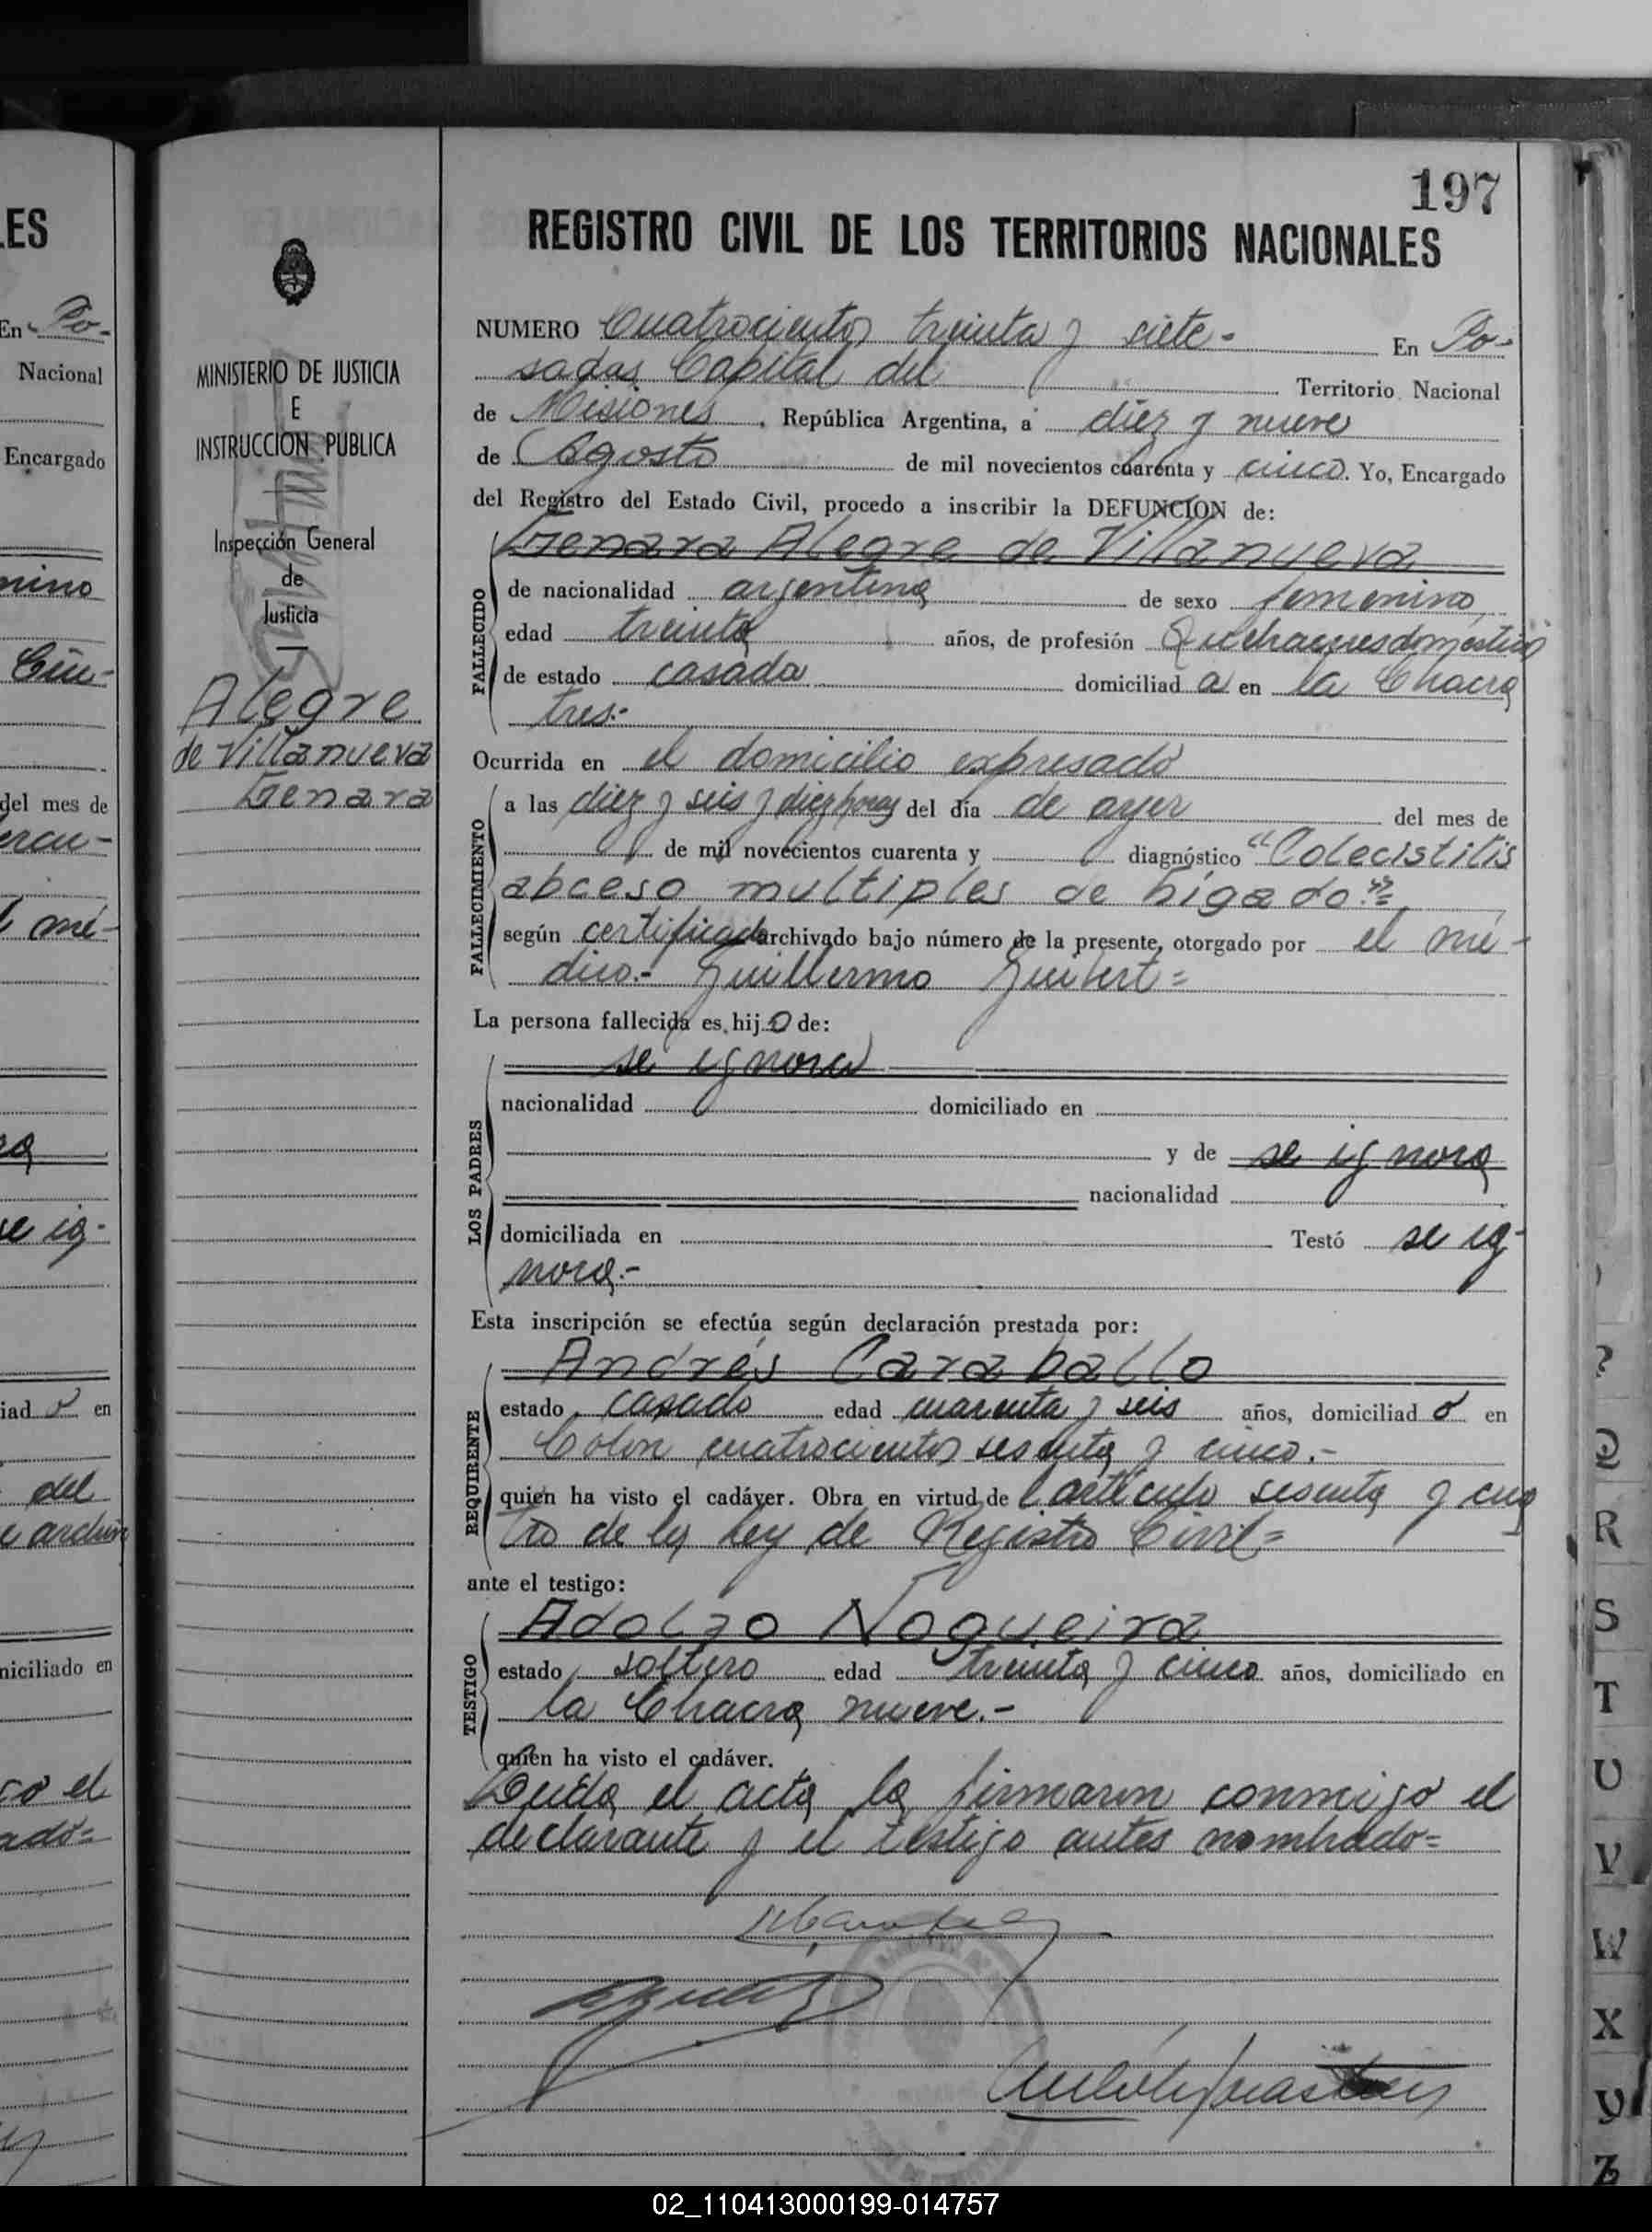 197
REGISTRO CIVIL DE LOS TERRITORIOS NACIONALES
MINISTERIO DE JUSTICIA
E
INSTRUCCION PUBLICA
Inspección General
de
Justicia
Alegre
de Villanueva
Genara
NUMERO Cuatrocientos treinta y siete - En Po-
sadas Capital del Territorio Nacional
de Misiones, República Argentina, a diez y nueve
de Agosto de mil novecientos cuarenta y cinco. Yo, Encargado
del Registro del Estado Civil, procedo a inscribir la DEFUNCION de:
Genara Alegre de Villanueva
FALLECIDO
de nacionalidad argentina de sexo femenino,
edad treinta años, de profesión Quehaceres domésticos
de estado casada domiciliad a en la Chacra
tres.-
Ocurrida en el domicilio expresado
FALLECIMIENTO
a las diez y seis y diez horas del día de ayer del mes de
de mil novecientos cuarenta y diagnóstico "Colecistitis
abceso multiples de higado"=
según certificado archivado bajo número de la presente, otorgado por el mé-
dico.- Guillermo =
La persona fallecida es hij o de:
LOS PADRES
se ignora
nacionalidad domiciliado en
y de se ignora
nacionalidad
domiciliada en Testó se ig-
nora.-
Esta inscripción se efectúa según declaración prestada por:
REQUIRENTE
Andrés Caraballo
estado casado edad cuarenta y seis años, domiciliad o en
Colon cuatrocientos sesenta y cinco.-
quien ha visto el cadáver. Obra en virtud de l artículo sesenta y cua
tro de la Ley de Registro Civil=
ante el testigo:
TESTIGO
Adolfo Nogueira
estado soltero edad treinta y cinco años, domiciliado en
la Chacra nueve.-
quien ha visto el cadáver.
Leída el acta la firmaron conmigo el
declarante y el testigo antes nombrado=
ES
En Po-
Nacional
Encargado
nino
del mes de
mé-
se ig-
iad o en
del
niciliado en
Q
R
S
T
U
V
W
X
Y
Z
02_110413000199-014757